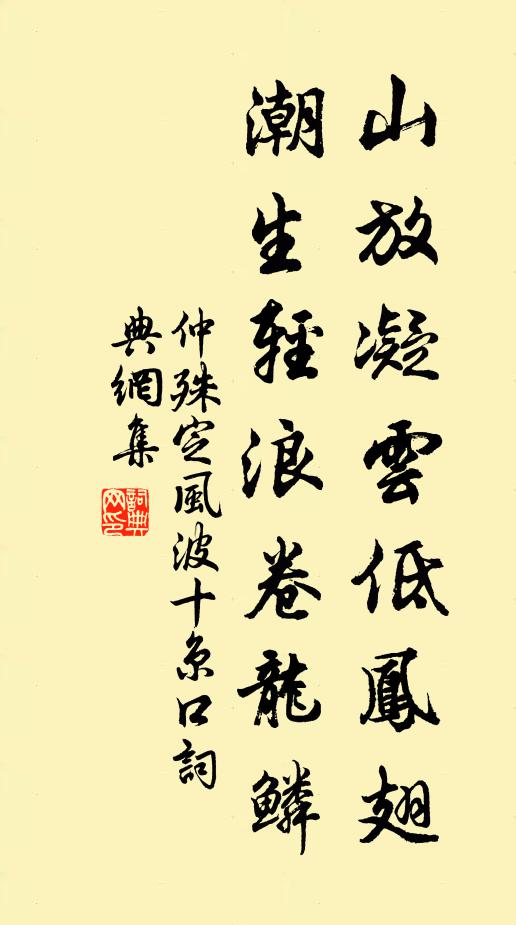 山放凝雲低鳳翅
潮生輕浪卷龍鱗
仲殊定風波十京口詞
典網集
詞典網印